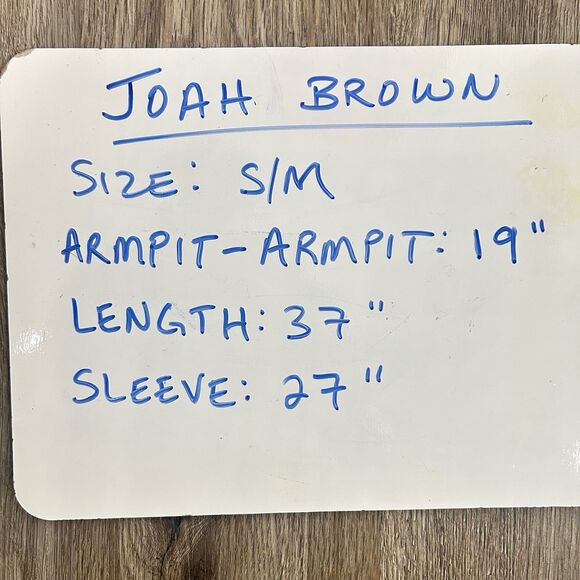 JOAH BROWN
SIZE: S/M
ARMPIT-ARMPIT: 19"
LENGTH: 37"
SLEEVE: 27"